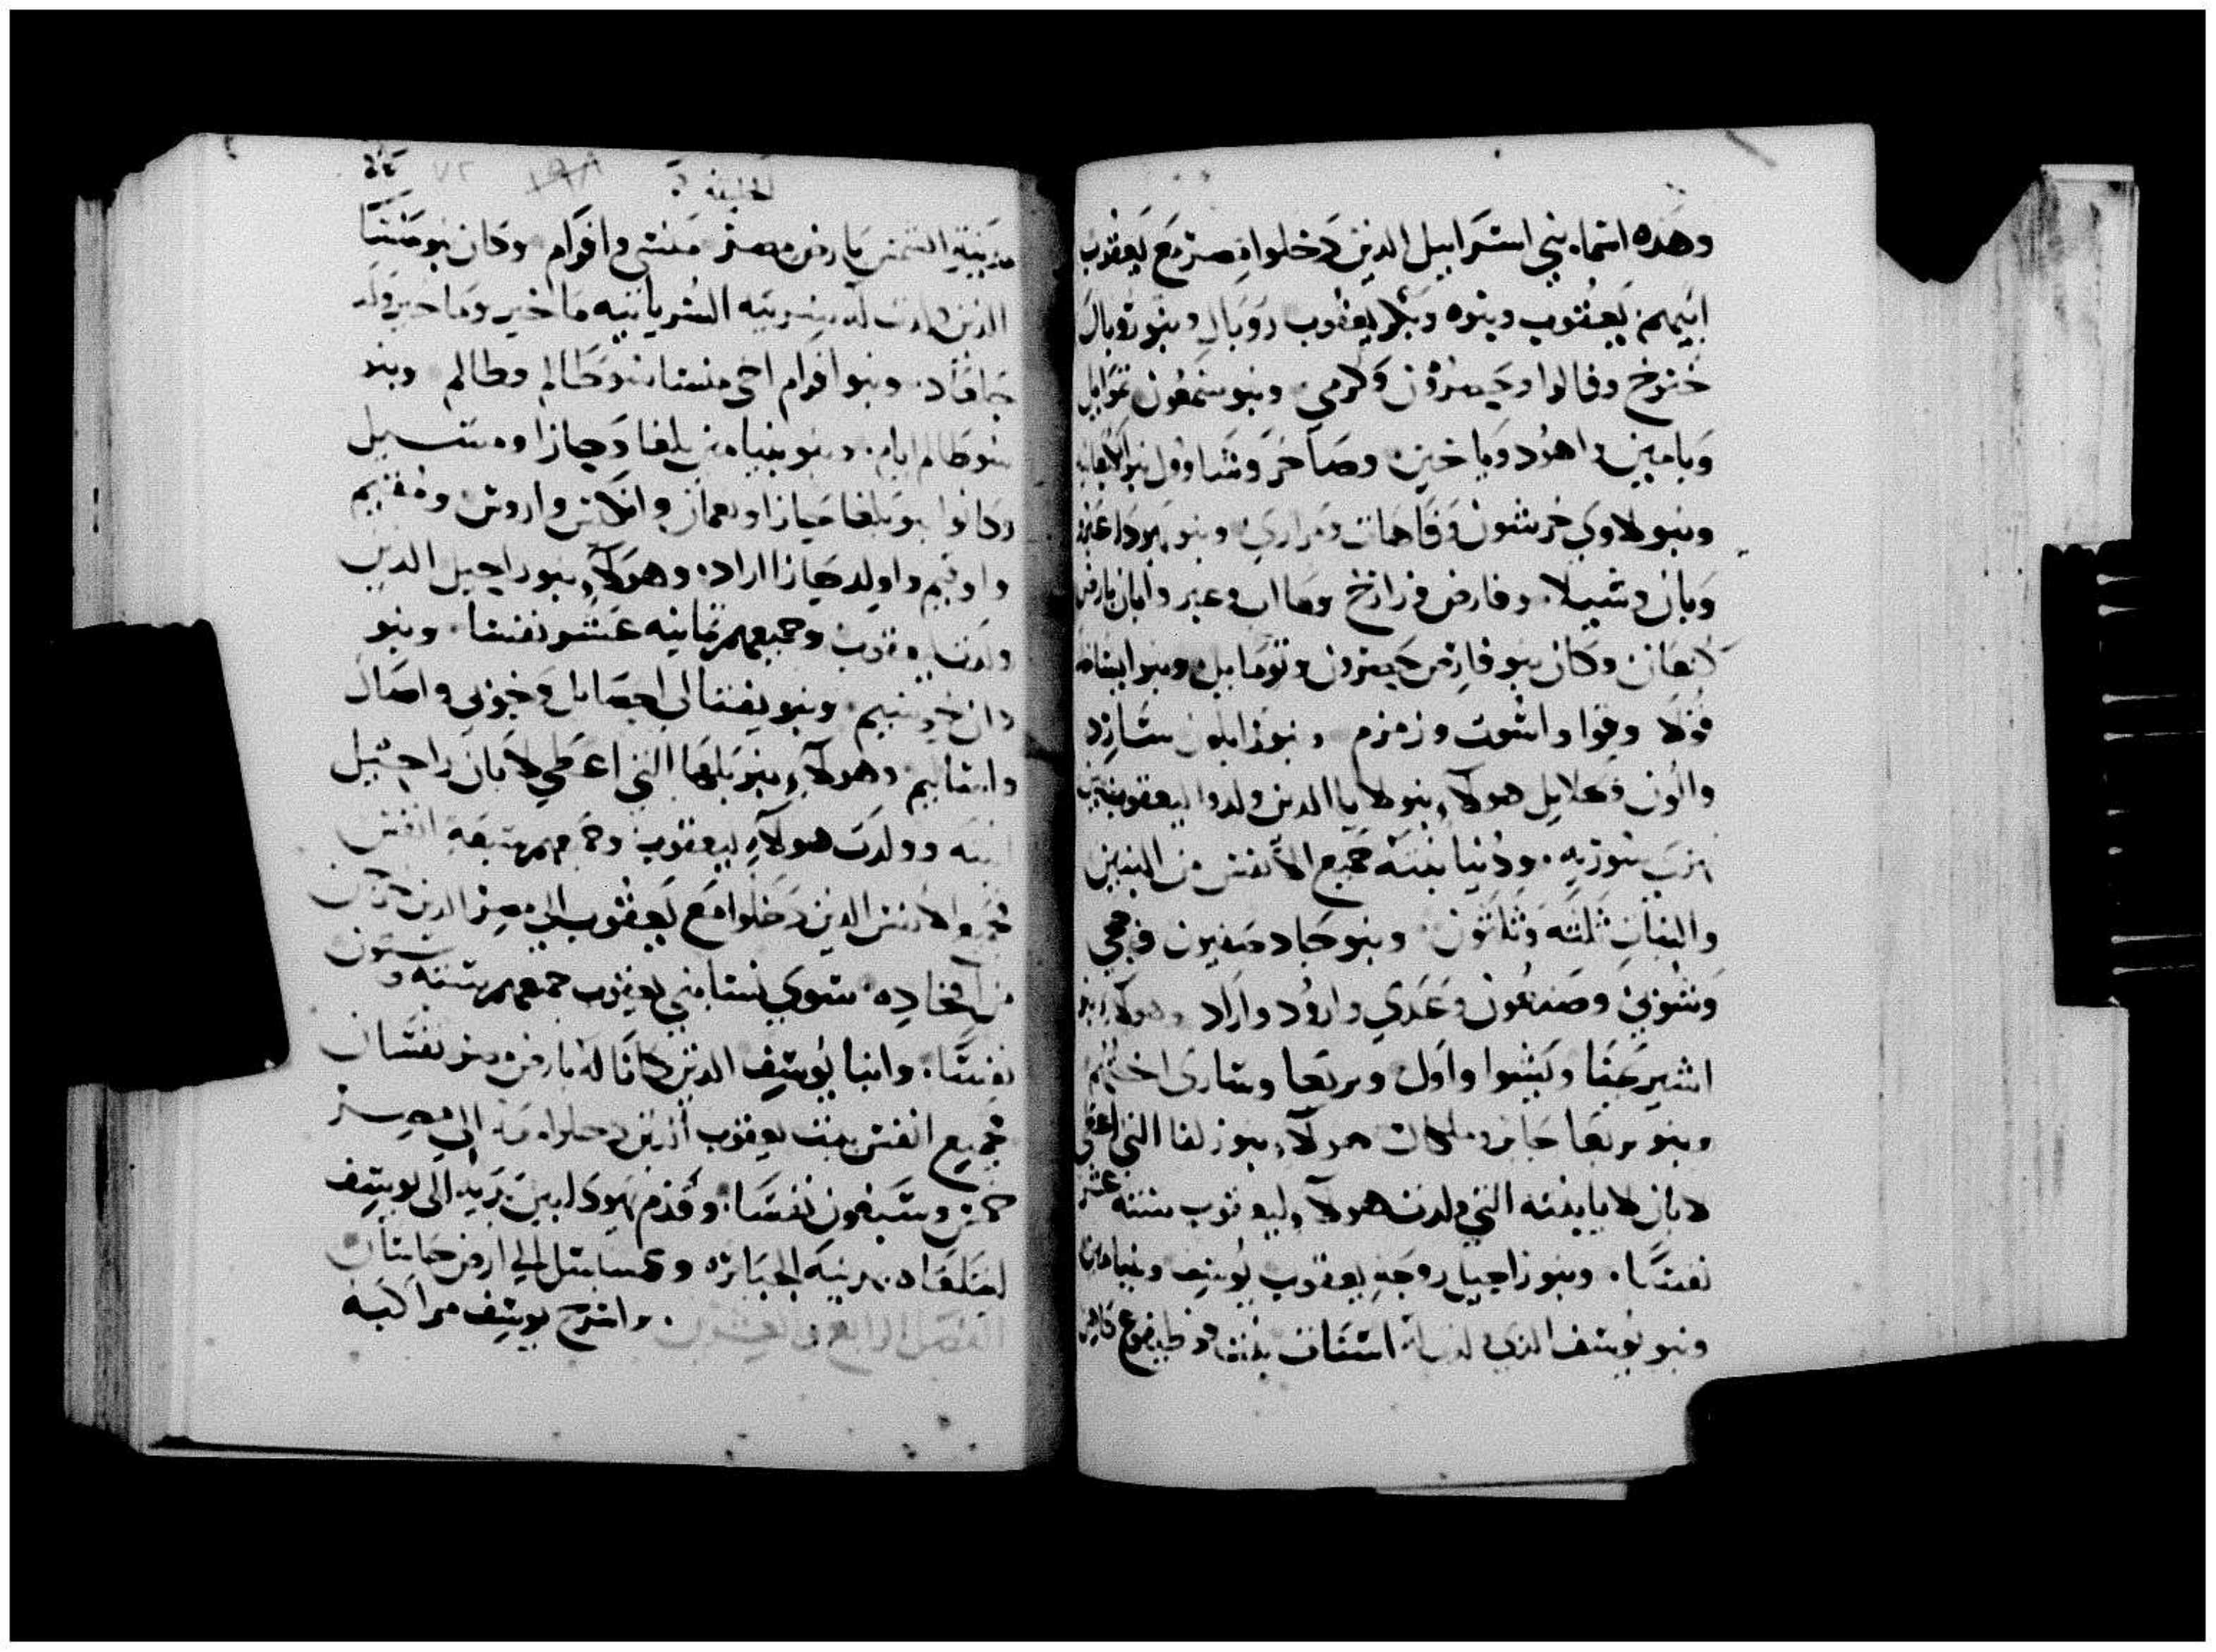 وهده اسماء بني اسرابيل الدين دخلوا مصر مع يعقوب
ابيهم يعقوب وبنوه وبكر يعقوب روبال وبنو روبال
خنوخ وفالوا وحيصرون وكرمي وبنو سمعون نموايل
ويامين واهود وياخين وصاخر وشاوول بنو الكنعانيه
وبنو لاوي خرشون وقاهات ومراري وبنو يهودا عير
وبان وشيلا وفارص وزارخ ومات وعير وابان بارض
كنعان وكان بنو فارص حيصرون وتومابيل وبنو ايساخر
فولا وفوا واشوت وزمزم وبنو زابلون سارد
والون وعلايل هولاء بنو لايا الدين ولدوا ليعقوب بين
نهري سوريه ودنيا بنته جميع الانفس من البنين
والبنات ثلثه وثلثون وبنو جاد صفيون وحجي
وشوني وصنعون وعدي وارود واراد وهولاء بنو
اشير يمنا ويشوا واول وبريعا وسارى اختهم
وبنو بريعا حابر وملكات هولاء بنو زلفا التي اعطى
لابان لايا بنته التي ولدت هولاء ليعقوب سته عشر
نفسا وبنو راحيل زوجه يعقوب يوسف وبنيامين
وبنو يوسف الدي لدت له اسنات بنت فوطيفرع كاهن
الخليقه
مدينة الشمس بارض مصر منسى وافرام وكان بنو منسا
الدين ولدت له سريته السريانيه ماخير وماخير ولد
جاقاد وبنو افرام اخي منسا شوطالم وطالم وبنو
شوطالم ايام وبنو بنيامين بلغا وجازا ومتسبيل
وكانوا بنو بلغا جيازا ونعمان وانكاس واروس ومفيم
واوفيم واولد جيازا اراد وهولاء بنو راحيل الدين
ولدت ليعقوب وجميعهم ثمانيه عشر نفسا وبنو
دان خوشيم وبنو يفتالي اجصايل وخوني واصال
واساليم وهولاء بنو بلها التي اعطي لابان راحيل
ابنته وولدت هولاء ليعقوب وجميعهم سبعه انفس
فجميع الانفس الدين دخلوا مع يعقوب الي مصر الدين خرجن
من افخاده سوى نسا بني يعقوب جميعهم سته وستون
نفسا وابنا يوسف الدين كانا له بارض مصر نفسان
فجميع انفس بيت يعقوب الدين دخلوا معه الي مصر
خمس وسبعون نفسا وقدم يهودا بين يديه الى يوسف
ليتلقاه بمدينة الجبابره وعسابتل الي ارض جاسان
الفصل الرابع والعشرون واسرج يوسف مراكبه